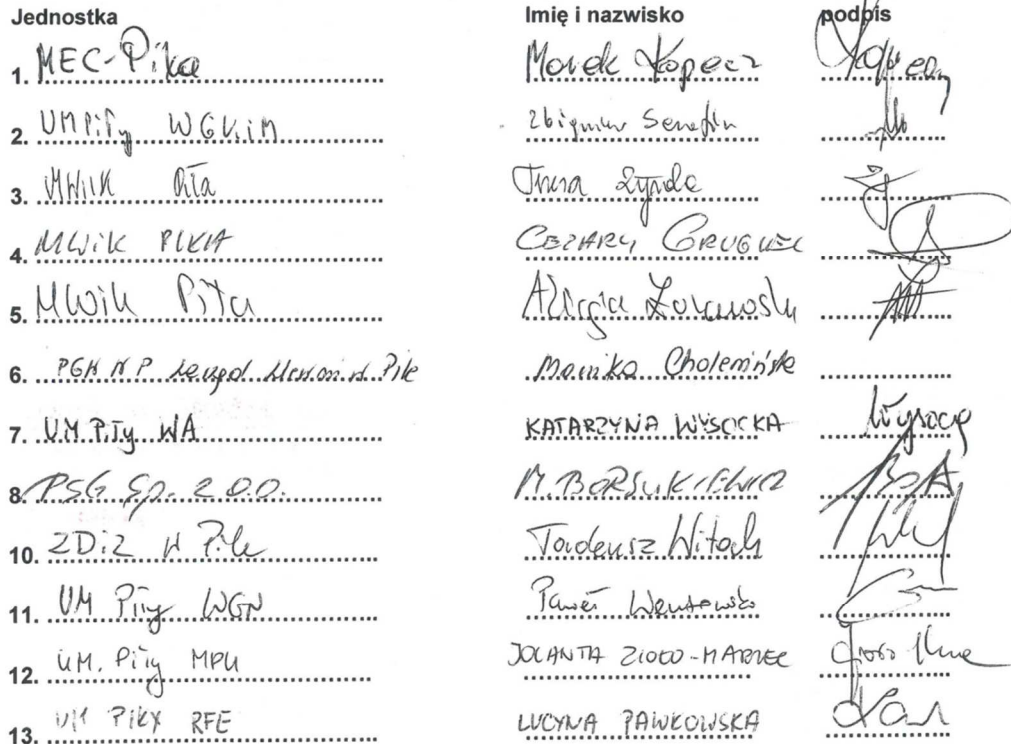 Jednostka Imię i nazwisko podpis
1. MEC-Piła Marek Kopecz
2. UM Piły WGKiM Zbigniew Serafin
3. MWiK Piła Zynda
4. MWiK PIŁA CEZARY
5. MWiK Piła Alicja
6. PGK NP w Pile Monika
7. U.M. Piły WA KATARZYNA WYSOCKA Wysocka
8. PSG Sp. z o.o. M. BORSUKIEWICZ
10. ZDiZ w Pile Tadeusz Witoch
11. UM Piły WGN Paweł
12. UM. Piły MPU JOLANTA ZIOŁO-MARZEC
13. UM PIŁY RFE LUCYNA PAWKOWSKA